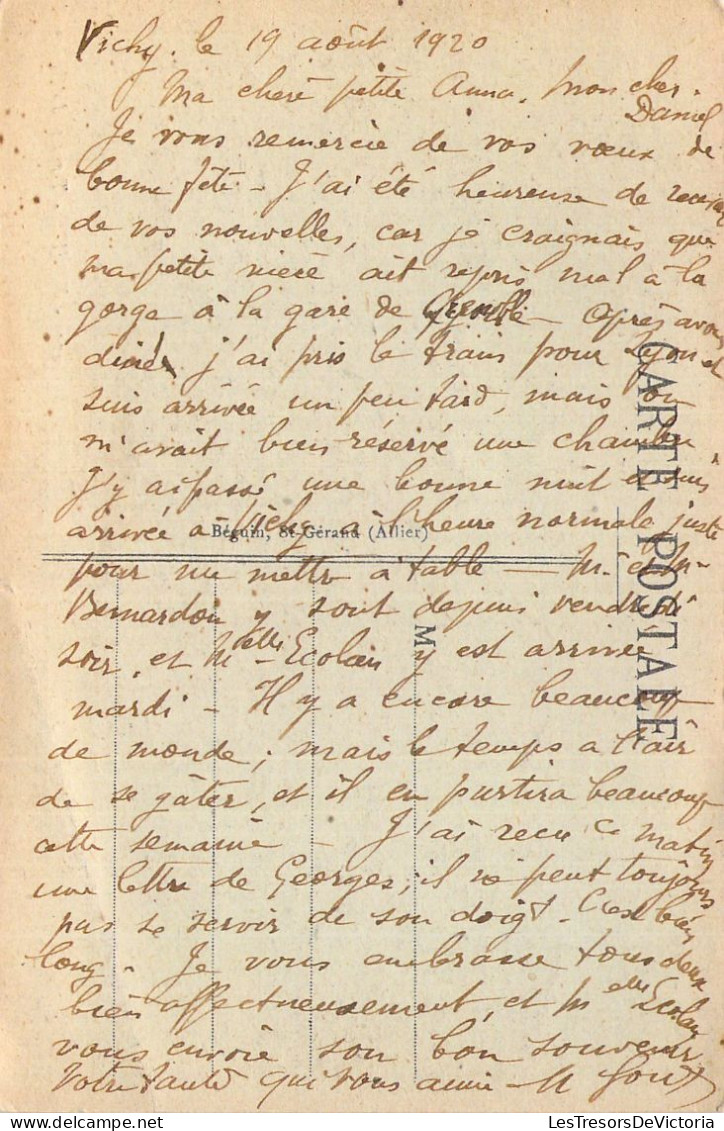 Vichy. le 19 août 1920
Ma chere petite Anna. Mon cher.
Daniel
Je vous remercie de vos vœux de
bonne fête - J'ai été heureuse de recevoir
de vos nouvelles, car je craignais que
ma petite niece ait repris mal à la
gorge à la gare de Grenoble - Après avoir
diné j'ai pris le train pour Lyon et
suis arrivée un peu tard, mais on
m'avait bien réservé une chambre
J'y ai passé une bonne nuit et suis
arrivée à Vichy à l'heure normale juste
Béguin, St-Gérand (Allier)
pour me mettre à table — Mr et Me
Bernardon y sont depuis vendredi
soir, et Melle Ecolan y est arrivée
mardi - Il y a encore beaucoup
de monde; mais le temps a l'air
de se gâter, et il en partira beaucoup
cette semaine - J'ai recu ce matin
une lettre de Georges; il ne peut toujours
pas se servir de son doigt. C'est bien
long. Je vous embrasse tous deux
bien affectueusement, et Melle Ecolan
vous envoie son bon souvenir
Votre tante qui vous aime - M
CARTE POSTALE
M
LesTresorsDeVictoria